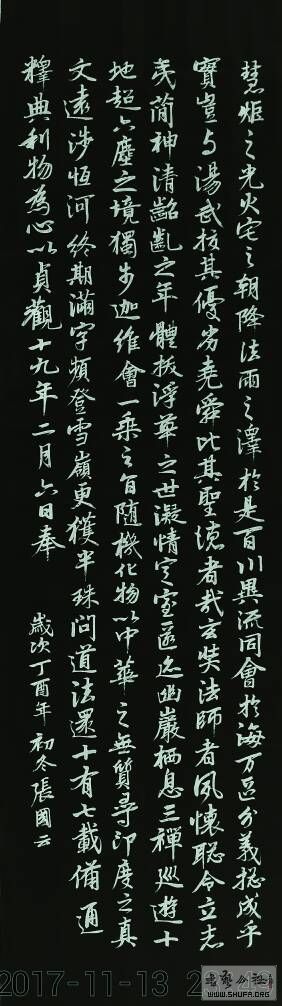 慧炬之光火宅之朝降法雨之澤於是百川異流同會於海万區分義揔成乎
實豈与湯武挍其優劣堯舜比其聖德者哉玄奘法師者夙懷聡令立志
夷簡神清齠齔之年體拔浮華之世凝情定室匿迹幽巖栖息三禪巡遊十
地超六塵之境獨步迦維會一乗之旨随機化物以中華之無質尋印度之真
文遠涉恒河終期滿字頻登雪嶺更獲半珠問道法還十有七載備通
釋典利物為心以貞觀十九年二月六日奉
歲次丁酉年初冬張國云
2017-11-13 2
書藝公社
www.SHUFA.ORG